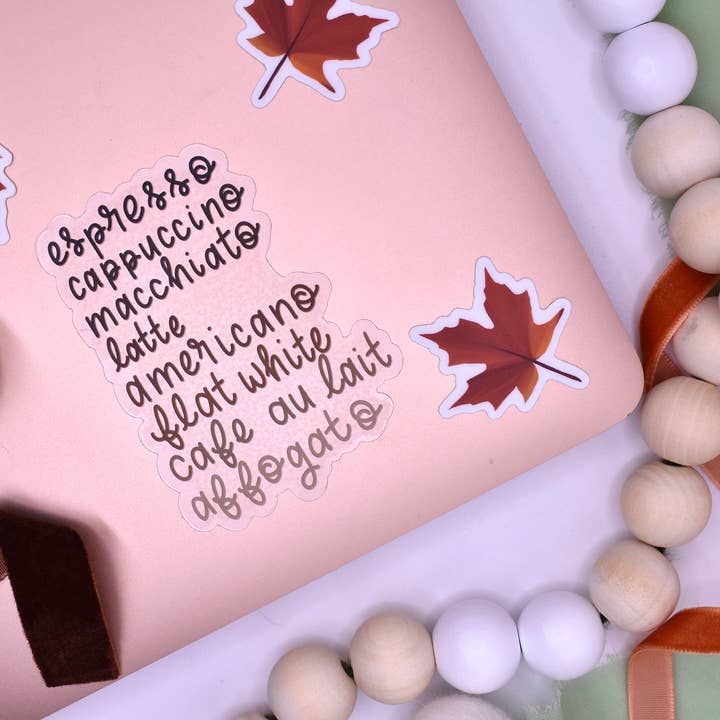 espresso
cappuccino
macchiato
latte
americano
flat white
cafe au lait
affogato